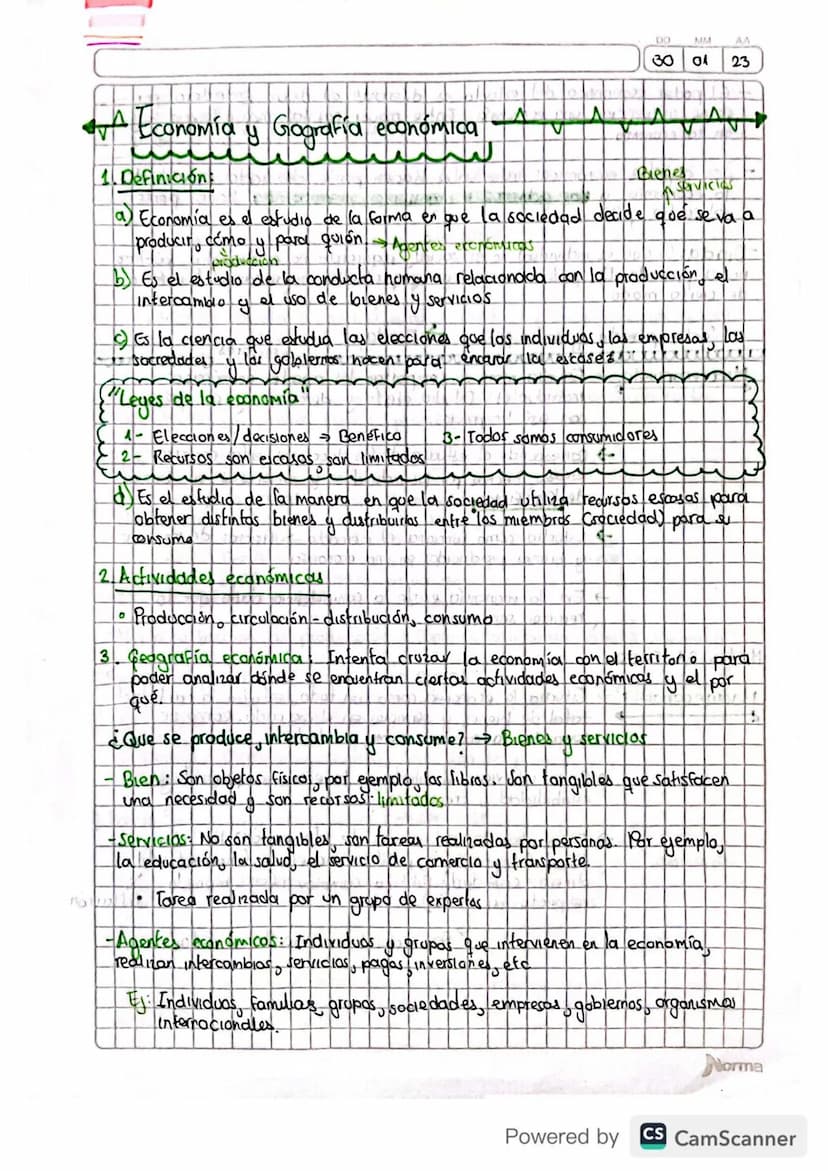 DD MM AA
30 01 23
Economía y Gografía económica
1. Definición:
Bienes
servicios
a) Economía es el estudio de la forma en que la sociedad decide qué se va a
producir, cómo y para quién → Agentes económicos
producción
b) Es el estudio de la conducta humana relacionada con la producción, el
intercambio y el uso de bienes y servicios
c) Es la ciencia que estudia las elecciones que los individuos, las empresas, las
sociedades y los gobiernos hacen para encarar la escasés
"Leyes de la economía"
1- Elecciones/decisiones → Benéfico 3- Todos somos consumidores
2- Recursos son escasos, son limitados
d) Es el estudio de la manera en que la sociedad utiliza recursos escasos para
obtener distintos bienes y distribuirlos entre los miembros (sociedad) para su
consumo
2. Actividades económicas
• Producción, circulación - distribución, consumo
3. Geografía económica: Intenta cruzar la economía con el territorio para
poder analizar dónde se encuentran ciertas actividades económicas y el por
qué.
¿Que se produce, intercambia y consume? → Bienes y servicios
- Bien: Son objetos físicos, por ejemplo, los libros. Son tangibles que satisfacen
una necesidad y son recursos limitados
- Servicios: No son tangibles, son tareas realizadas por personas. Por ejemplo,
la educación, la salud, el servicio de comercio y transporte.
• Tarea realizada por un grupo de expertos
- Agentes económicos: Individuos y grupos que intervienen en la economía,
realizan intercambios, servicios, pagos, inversiones, etc
Ej: Individuos, familias, grupos, sociedades, empresas, gobiernos, organismos
internacionales.
Norma
Powered by CS CamScanner